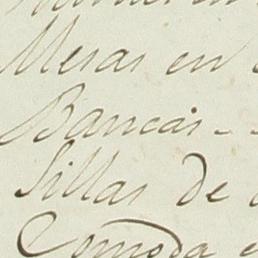 Mesas en
Bancas -
Sillas de
Comoda